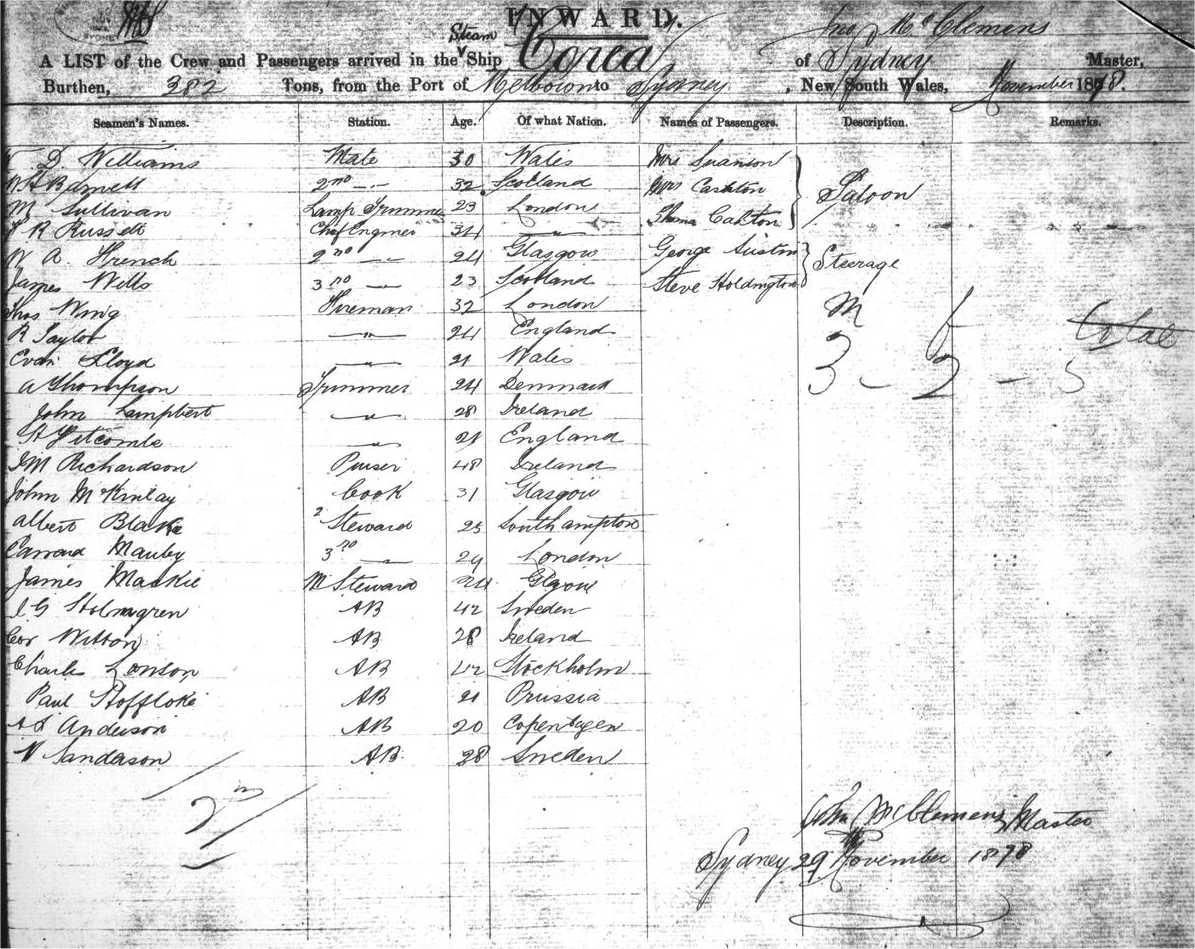 INWARD.
Steam
A LIST of the Crew and Passengers arrived in the Ship Corea of Sydney Jno McClemens Master,
Burthen, 382 Tons, from the Port of Melbourn to Sydney, New South Wales, November 1878.
Seamen's Names. Station. Age. Of what Nation. Names of Passengers. Description. Remarks.
D Williams Mate 30 Wales Mrs Suanson
2nd 32 Scotland Mrs Carlton Saloon
M Sullivan Lamp Trimmer 23 London Carlton
R Russell Chief Engineer 34 "
W A. French 2nd 24 Glasgow George Austin Steerage
James Wills 3rd 23 Scotland Steve Holdington
Thos King Fireman 32 London M f Total
R Taylor " 24 England
Evan Lloyd " 21 Wales 3 - 2 - 5
A Thompson Trimmer 24 Denmark
John Lampbert " 28 Ireland
" 21 England
J M Richardson Purser 48 Ireland
John McKinlay Cook 31 Glasgow
Albert Blake 2 Steward 25 Southampton
Mauby 3rd London
James Mackie M Steward 24
Holmgren AB 42 Sweden
Geo Witton AB 28 Ireland
Charles Lonson AB 42 Stockholm
Paul Stoffloke AB 21 Prussia
Anderson AB 20 Copenhagen
N Sanderson AB 28 Sweden
John McClemens Master
Sydney 29 November 1878